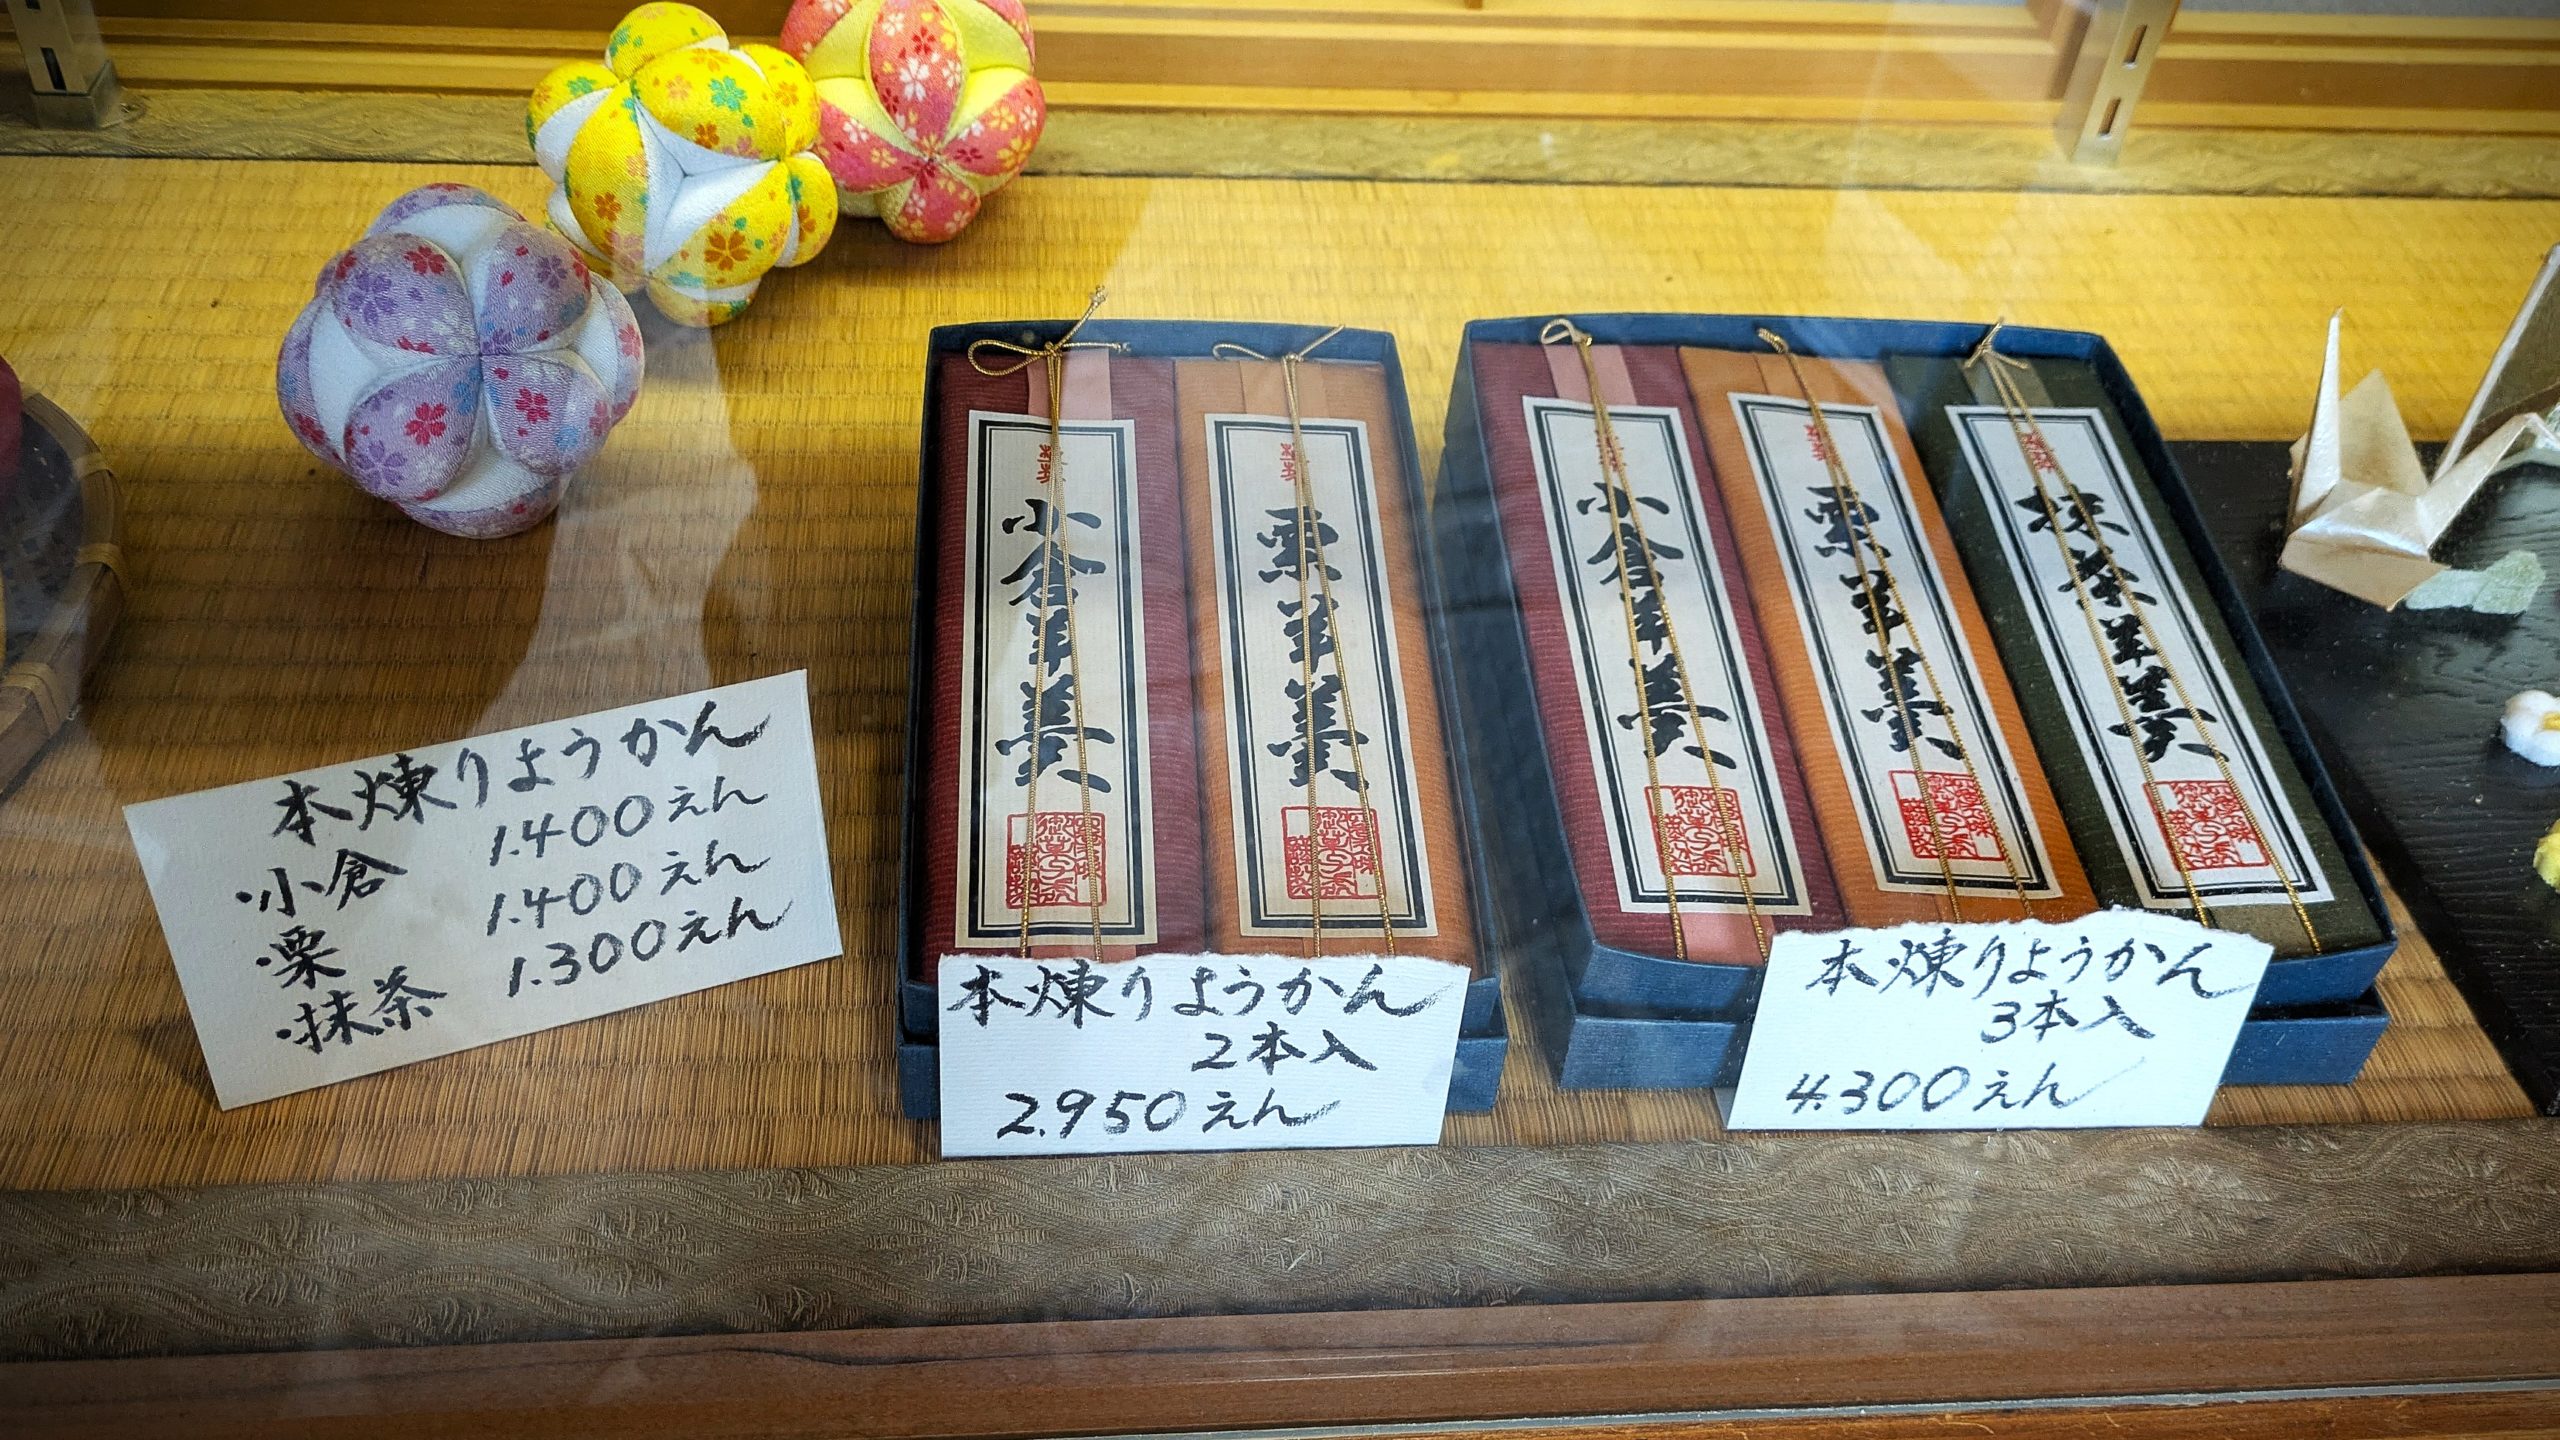 本煉りようかん
・小倉 1.400えん
・栗 1.400えん
・抹茶 1.300えん
小倉羊羹
栗羊羹
本煉りようかん
2本入
2.950えん
小倉羊羹
栗羊羹
抹茶羊羹
本煉りようかん
3本入
4.300えん